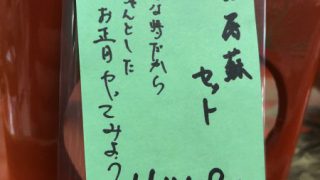 お屠蘇セット
な時だから
きちんとした
お正月やってみよう